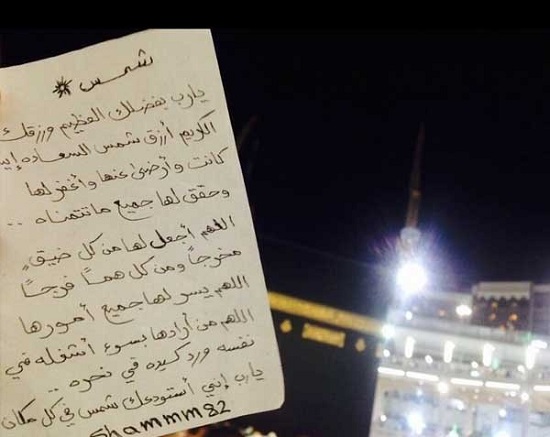 شمس
يارب بفضلك العظيم ورزقك
الكريم أرزق شمس السعاده إينما
كانت وأرضى عنها وأغفر لها
وحقق لها جميع ماتتمناه ..
اللهم أجعل لها من كل ضيقٍ
مخرجاً ومن كل همـاً فرجاً
اللهم يسر لها جميع أمورها
اللهم من أرادها بسوء أشغله في
نفسه ورد كيده في نحره ..
يارب إني أستودعك شمس في كل مكان
Shammm82